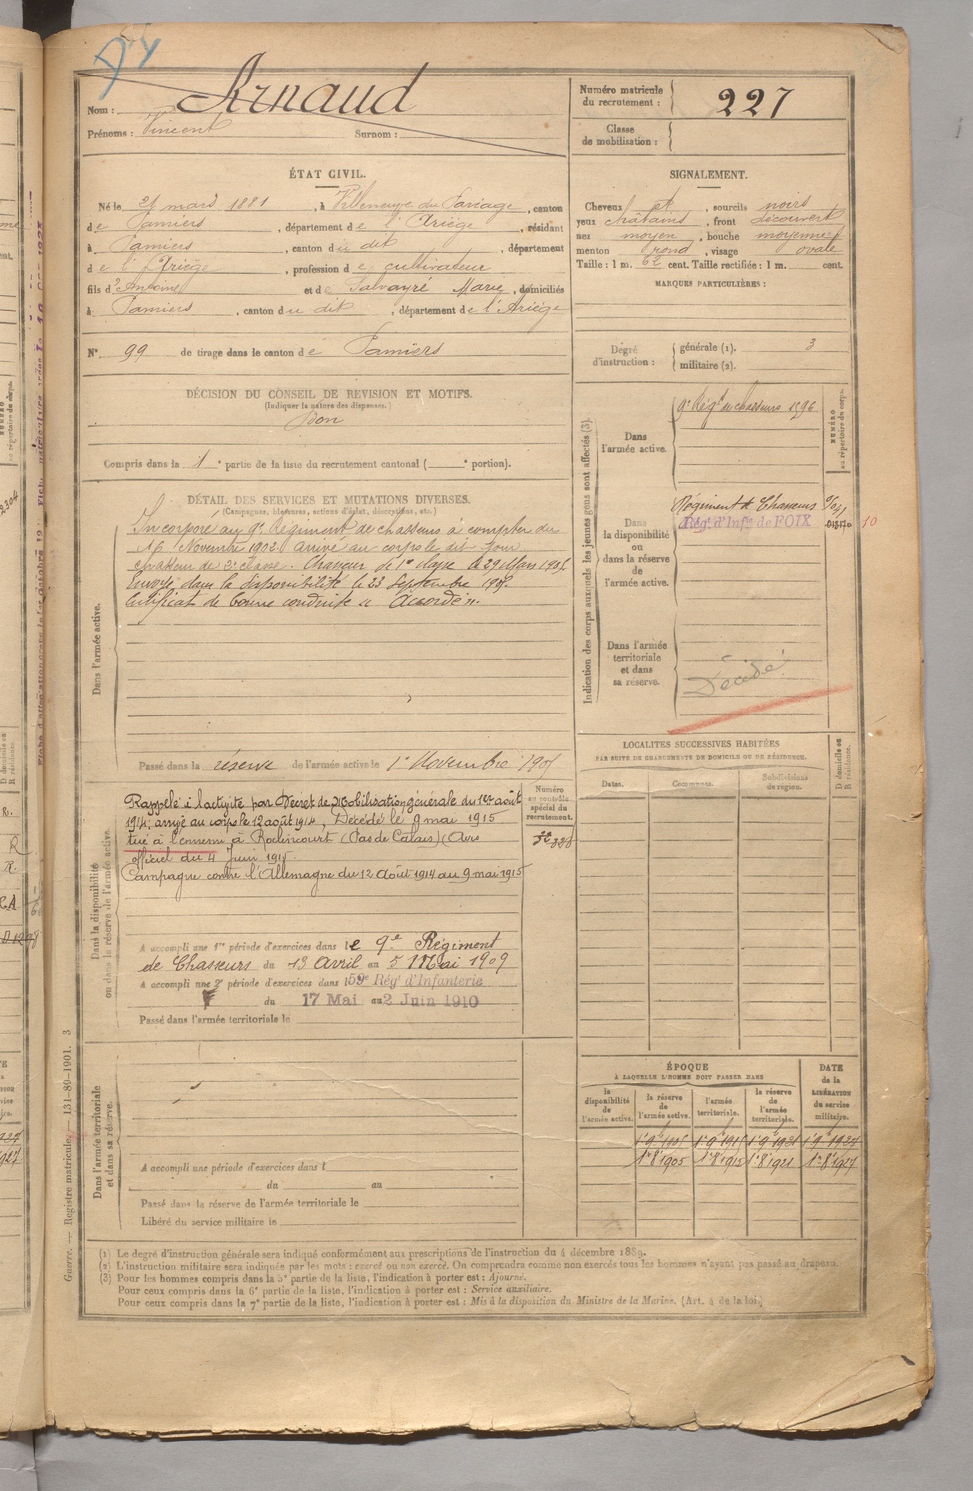 Arnaud
Nom :
Prénoms : Vincent Surnom :
Numéro matricule du recrutement : 227
Classe de mobilisation :
ÉTAT CIVIL.
Né le 21 mars 1881, à Villeneuve du Paréage, canton
de Pamiers, département de l'Ariège, résidant
à Pamiers, canton du dit, département
de l'Ariège, profession de cultivateur
fils d'Antoine et de Salvayré Marie, domiciliés
à Pamiers, canton du dit, département de l'Ariège
N° 99 de tirage dans le canton de Pamiers
SIGNALEMENT.
Cheveux et, sourcils noirs
yeux châtains, front découvert
nez moyen, bouche moyenne
menton rond, visage ovale
Taille : 1 m. 62 cent. Taille rectifiée : 1 m. cent.
MARQUES PARTICULIÈRES :
Degré d'instruction :
générale (1). 3
militaire (2).
DÉCISION DU CONSEIL DE REVISION ET MOTIFS.
(Indiquer la nature des dispenses.)
Bon
Compris dans la 1e partie de la liste du recrutement cantonal ( e portion).
DÉTAIL DES SERVICES ET MUTATIONS DIVERSES.
(Campagnes, blessures, actions d'éclat, décorations, etc.)
Dans l'armée active.
Incorporé au 9e Régiment de chasseurs à compter du
16 Novembre 1902. Arrivé au corps le dit jour
chasseur de 2e classe. Chasseur de 1re classe le 29 Mars 1905.
Envoyé dans la disponibilité le 23 Septembre 1905.
Certificat de bonne conduite "Accordé".
Passé dans la réserve de l'armée active le 1er Novembre 1905
Indication des corps auxquels les jeunes gens sont affectés (3).
NUMÉRO au répertoire du corps.
Dans l'armée active.
9e Régt de chasseurs 1596
Dans la disponibilité ou dans la réserve de l'armée active.
Régiment de Chasseurs
Régt d'Infie de FOIX
10
Dans l'armée territoriale et dans sa réserve.
Décédé
Dans la disponibilité ou dans la réserve de l'armée active.
Numéro au contrôle spécial du recrutement.
Rappelé à l'activité par Décret de Mobilisation générale du 1er août
1914; arrivé au corps le 12 août 1914, Décédé le 9 mai 1915
tué à l'ennemi à Roclincourt (Pas de Calais) (Avis
officiel du 4 Juin 1915.
Campagne contre l'Allemagne du 12 Août 1914 au 9 mai 1915
A accompli une 1re période d'exercices dans le 9e Régiment
de Chasseurs du 13 Avril au 5 Mai 1909
A accompli une 2e période d'exercices dans le 59e Régt d'Infanterie
du 17 Mai au 2 Juin 1910
Passé dans l'armée territoriale le
LOCALITÉS SUCCESSIVES HABITÉES
PAR SUITE DE CHANGEMENTS DE DOMICILE OU DE RÉSIDENCE.
Dates. Communes. Subdivisions de région. D domicile ou R résidence.
Dans l'armée territoriale et dans sa réserve.
A accompli une période d'exercices dans l
du au
Passé dans la réserve de l'armée territoriale le
Libéré du service militaire le
ÉPOQUE
À LAQUELLE L'HOMME DOIT PASSER DANS
DATE de la LIBÉRATION du service militaire.
la disponibilité de l'armée active. la réserve de l'armée active. l'armée territoriale. la réserve de l'armée territoriale.
1er 8e 1905 1er 8e 1915 1er 8e 1921 1er 8e 1927
Guerre. — Registre matricule. — 131-89-1901. 3
(1) Le degré d'instruction générale sera indiqué conformément aux prescriptions de l'instruction du 4 décembre 1889.
(2) L'instruction militaire sera indiquée par les mots : exercé ou non exercé. On comprendra comme non exercés tous les hommes n'ayant pas passé au drapeau.
(3) Pour les hommes compris dans la 5e partie de la liste, l'indication à porter est : Ajourné.
Pour ceux compris dans la 6e partie de la liste, l'indication à porter est : Service auxiliaire.
Pour ceux compris dans la 7e partie de la liste, l'indication à porter est : Mis à la disposition du Ministre de la Marine. (Art. 4 de la loi.)